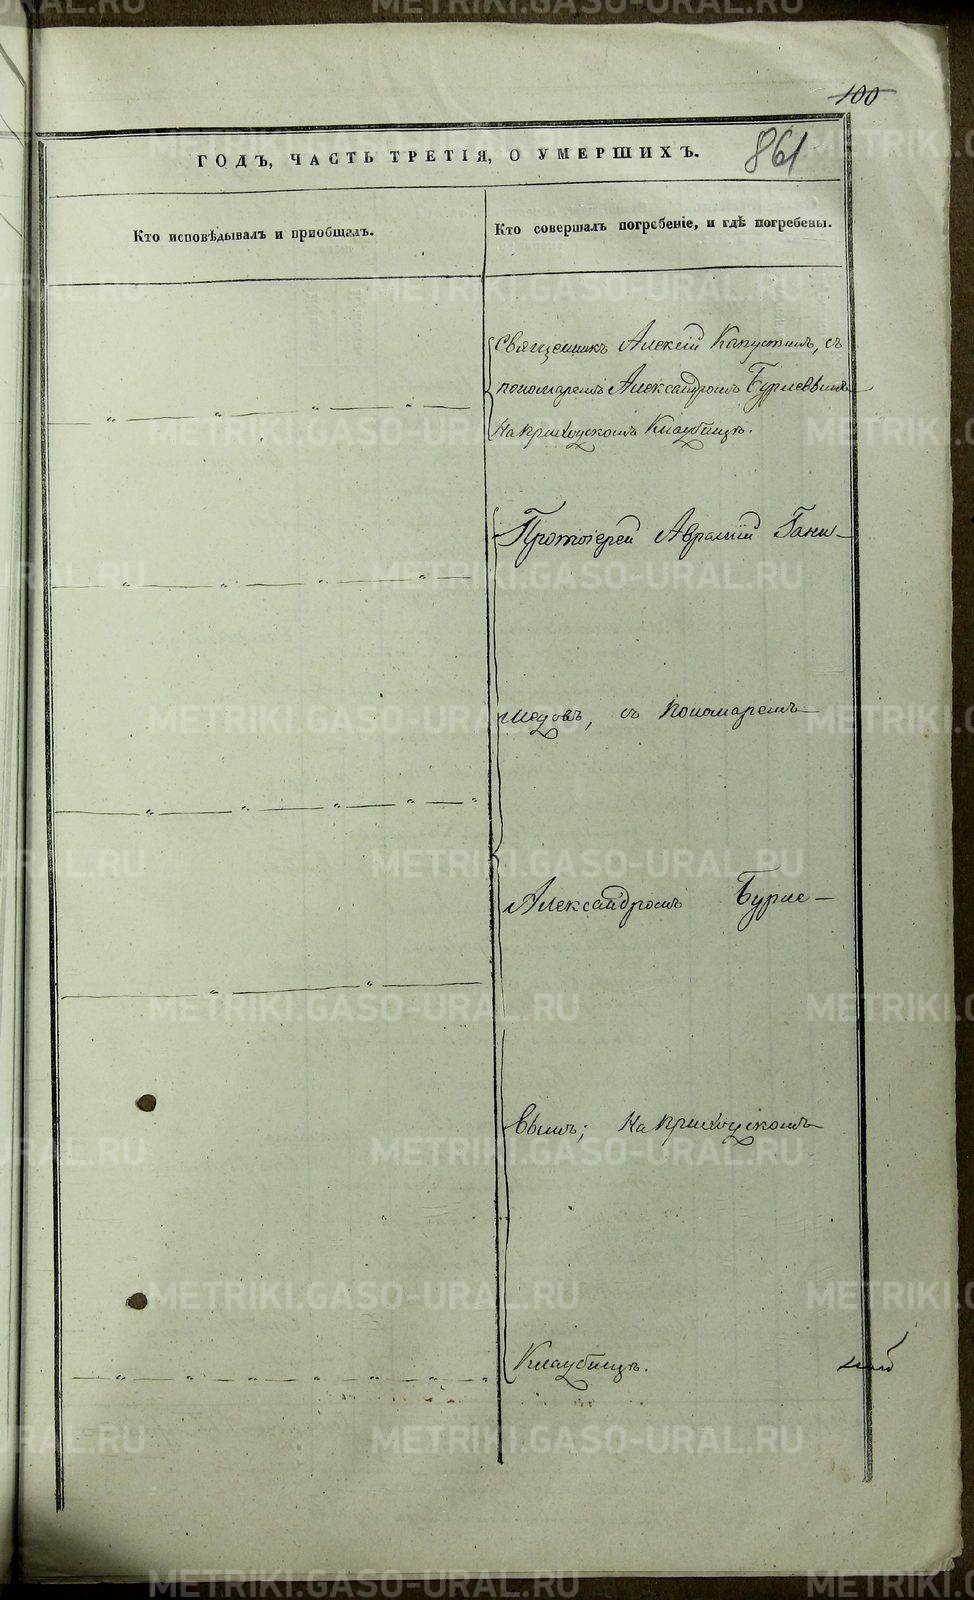 100
861
ГОДЪ, ЧАСТЬ ТРЕТІЯ, О УМЕРШИХЪ.
Кто исповѣдывалъ и приобщалъ.
Кто совершалъ погребеніе, и гдѣ погребены.
Священникъ Алексій Капустинъ, съ
пономаремъ Александромъ Бурневымъ
на приходскомъ Кладбищѣ.
Протоіерей Аврамій Гани-
медовъ, съ пономаремъ
Александромъ Бурне-
вымъ; на приходскомъ
Кладбищѣ.
METRIKI.GASO-URAL.RU